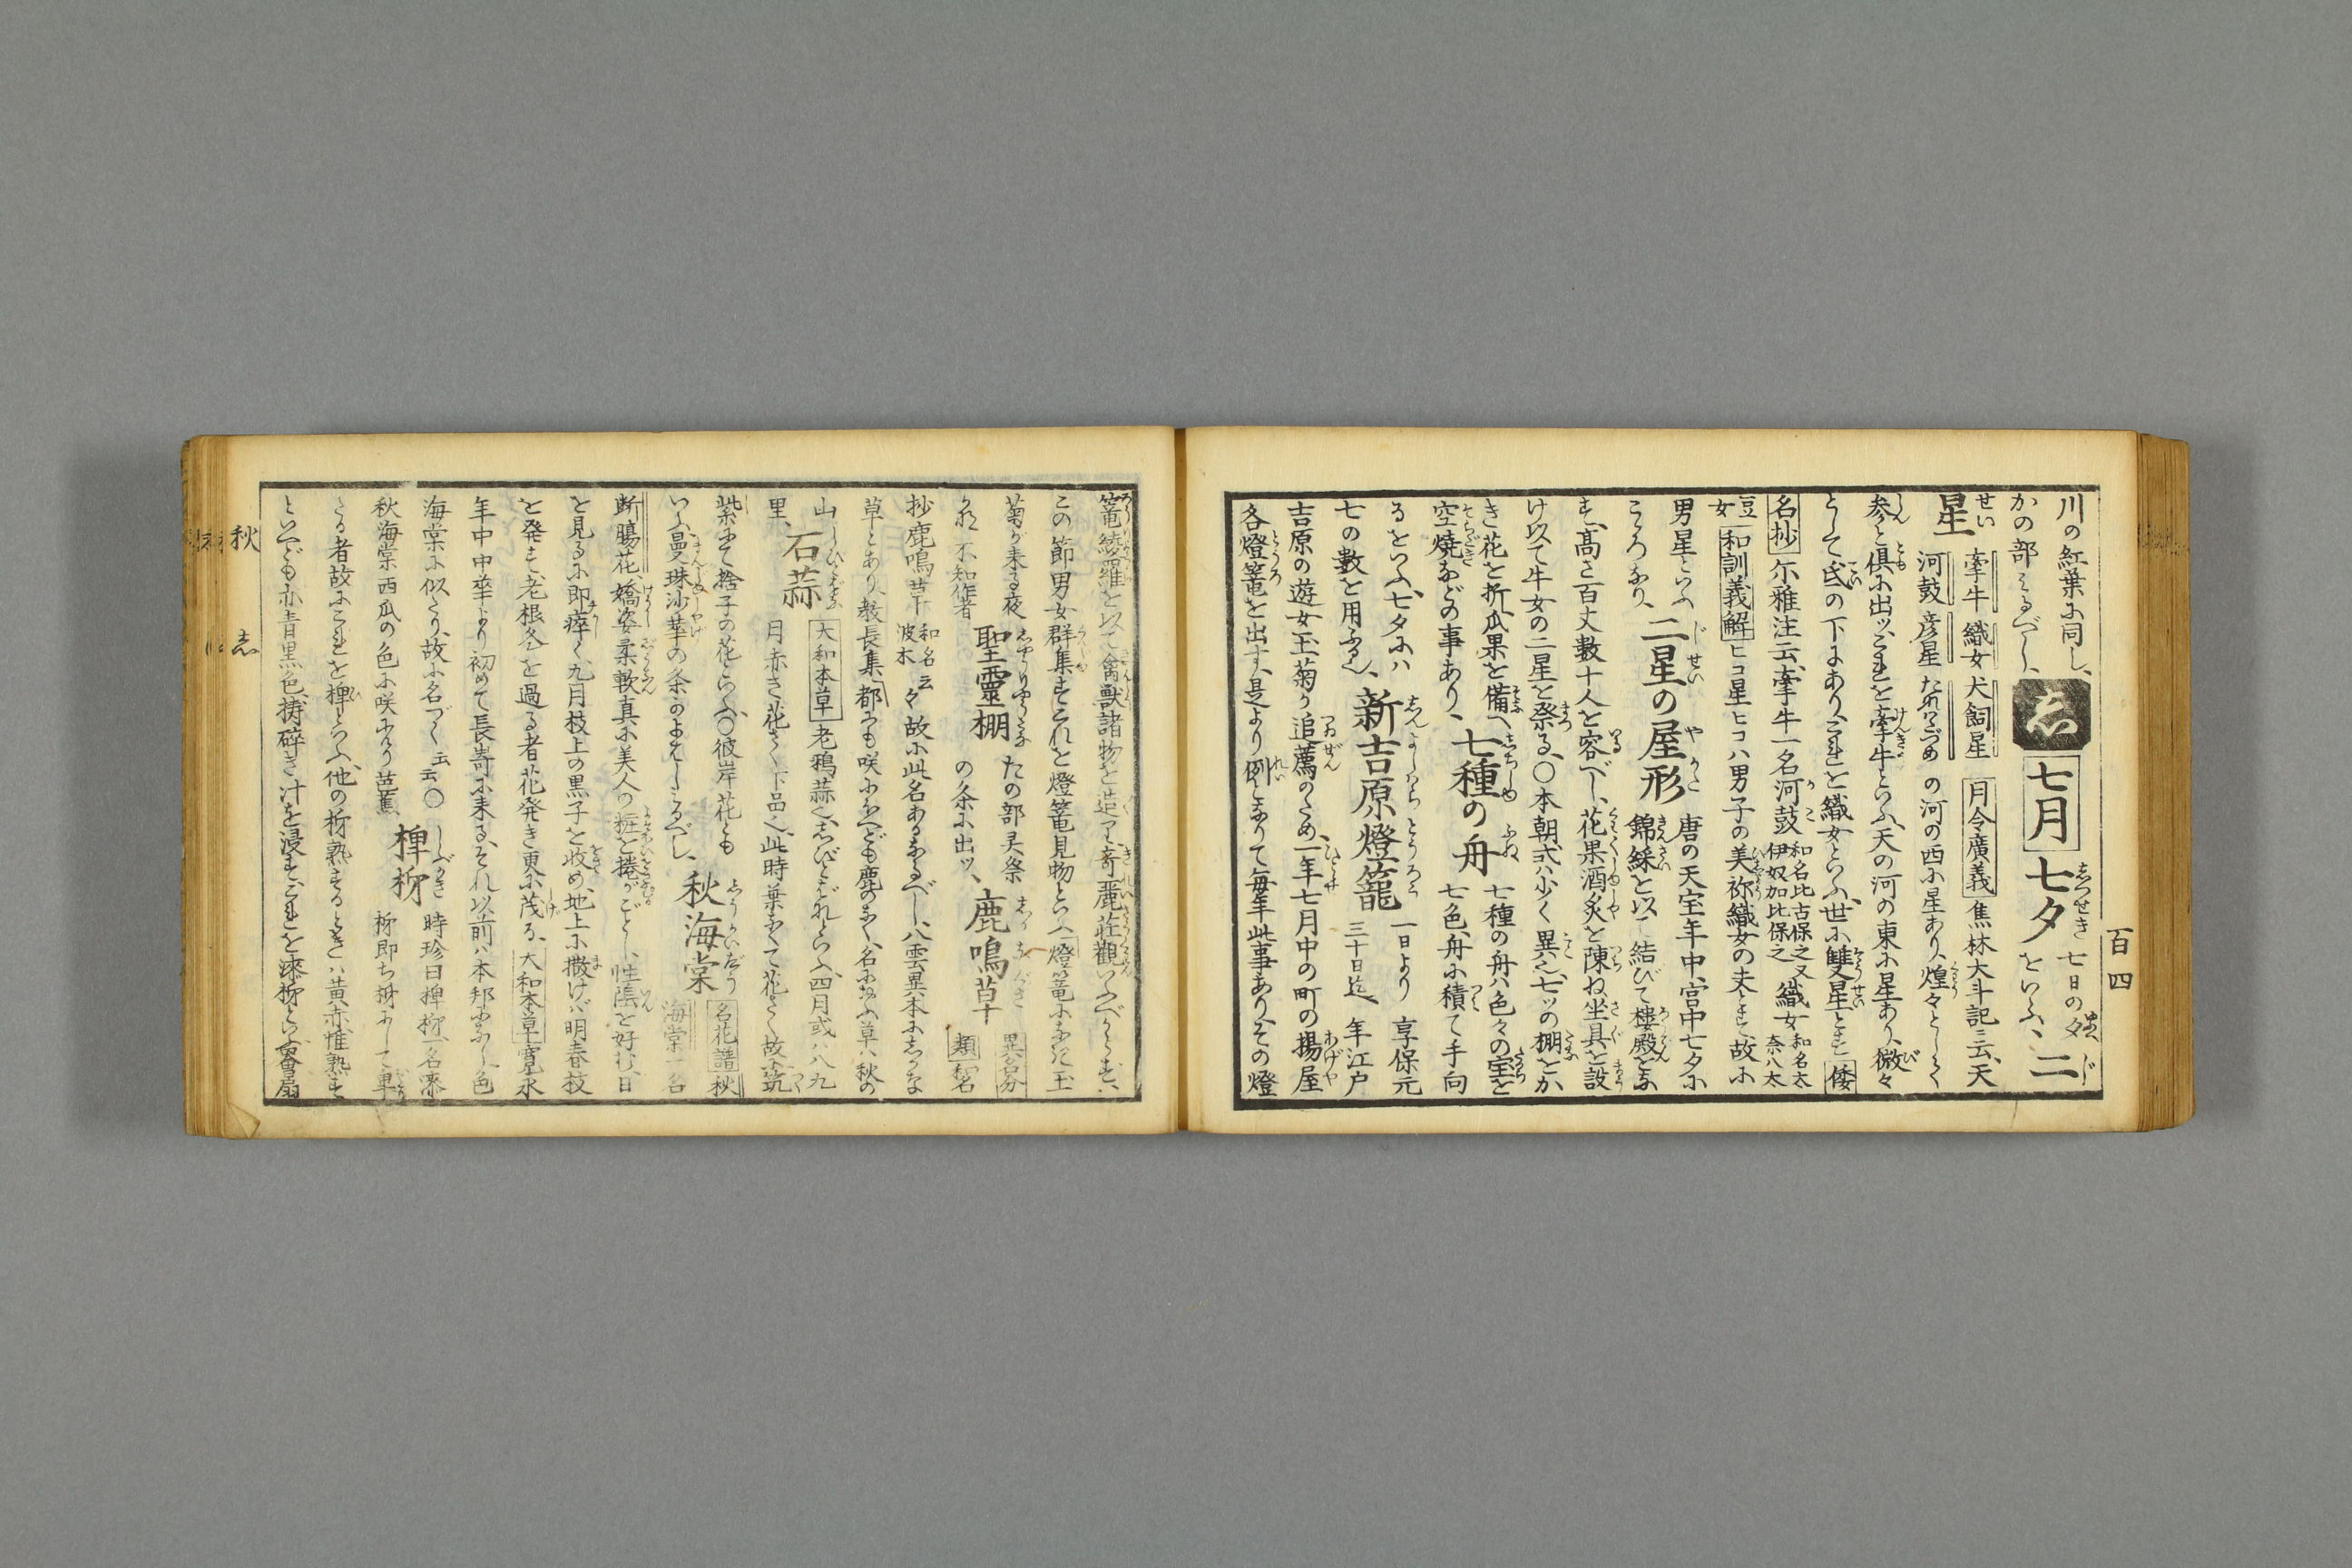 百四
川の紅葉に同し、
かの部みるべし、
志
七月
七夕 七日の夕
をいふ、
二
星 牽牛 織女 犬飼星
河鼓 彦星 たなばつめ
月令廣義 焦林大斗記云、天
の河の西に星あり、煌々として
参と倶に出ッ、これを牽牛といふ、天の河の東に星あり、微々
として氐の下にあり、これを織女といふ、世に雙星とす 倭
名抄 尓雅注云、牽牛一名河鼓 和名比古保之又
伊奴加比保之 織女 和名太
奈八太
豆
女 和訓義解 ヒコ星ヒコハ男子の美称織女の夫とす、故に
男星といふ
こゝろなり、
二星の屋形 唐の天宝年中、宮中七夕に
錦綵を以て結びて樓殿をな
す、高さ百丈数十人を容べし、花果酒炙を陳ね坐具を設
け以て牛女の二星を祭る、〇本朝式ハ少く異也、七ッの棚をか
き花を折瓜果を備へ
空燒などの事あり、
七種の舟 七種の舟ハ色々の宝を
七色、舟に積て手向
るをいふ、七夕にハ
七の数を用ふ也、
新吉原燈籠 一日より
三十日迄
享保元
年江戸
吉原の遊女玉菊が追薦のため、一年七月中の町の揚屋
各燈篭を出す、是より例となりて毎年此事あり、その燈
篭綾羅を以て禽獣諸物を造り奇麗荘觀いふべからず、
この節男女群集すこれを燈篭見物といふ 燈篭になき玉
菊が来る夜
かな 不知作者
聖靈棚 たの部灵祭
の条に出ッ、
鹿鳴草 異名分
類 和名
抄鹿鳴草 和名
波木 云々 故に此名あるなるべし、八雲異本にしかな
草とあり、教長集 都にも咲にけども鹿のなく、名におふ草ハ秋の
山
里、
石蒜 大和本草 老鴉蒜也、しびとばなといふ、四月或ハ八九
月赤き花さく下品也、此時葉なくて花さく故に筑
紫にて捨子の花といふ〇彼岸花とも
いふ曼珠沙華の条かよはしみるべし、
秋海棠 名花譜 秋
海棠一名
断腸花、嬌姿柔軟真に美人の粧を捲がごとし、性陰を好む、日
を見るに即瘁く、九月枝上の黒子を收め、地上に撒けハ明春枝
を発す、老根冬を過る者花発き更に茂る、大和本草 寛永
年中中華より初めて長嵜に来る、それ以前ハ本邦になし色
海棠に似たり、故に名づく 云云〇
秋海棠西瓜の色に咲にけり 芭蕉
椑柹 時珍曰椑柹一名漆
柹即ち柹にして卑
きる者故にこれを椑といふ、他の柹熟するときハ黄赤惟熟す
といへども亦青黒色、擣碎き汁を浸す、これを漆柹といふ罾扇
秋
志